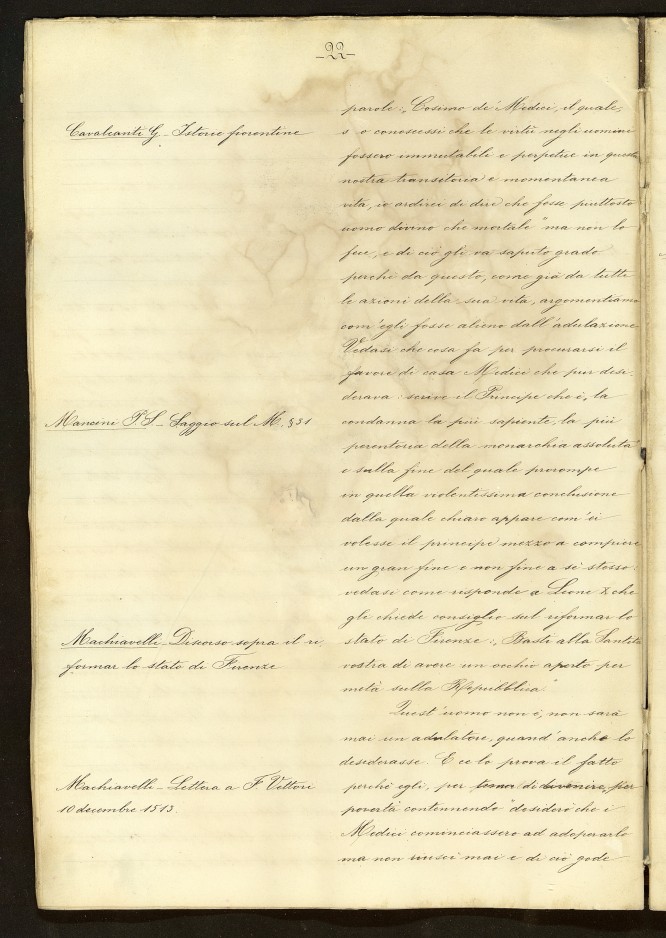 -22-
Cavalcanti G - Istorie fiorentine
parole: „Cosimo de' Medici, il quale,
s'io conoscessi che le virtù negli uomini
fossero immutabili e perpetue in questa
nostra transitoria e momentanea
vita, io ardirei di dire che fosse piuttosto
uomo divino che mortale" ma non lo
fece, e di ciò gli va saputo grado
perchè da questo, come già da tutte
le azioni della sua vita, argomentiamo
com'egli fosse alieno dall'adulazione.
Vedasi che cosa fa per procurarsi il
favore di casa Medici che pur desi-
derava: scrive il Principe che è, la
Mancini P. S - Saggio sul M. §31
condanna la più sapiente, la più
perentoria della monarchia assoluta
e sulla fine del quale prorompe
in quella violentissima conclusione
dalla quale chiaro appare com'ei
volesse il principe mezzo a compiere
un gran fine e non fine a sè stesso:
vedasi come risponde a Leone X che
gli chiede consiglio sul riformar lo
Machiavelli - Discorso sopra il ri-
formar lo stato di Firenze
stato di Firenze: „Basti alla Santità
vostra di avere un occhio aperto per
metà sulla Repubblica."
Quest'uomo non è, non sarà
mai un adulatore, quand'anche lo
desiderasse. E ce lo prova il fatto
Machiavelli - Lettera a F. Vettori
10 decembre 1513.
perchè egli, per tema di divenire, per
povertà contennendo "desiderò che i
Medici cominciassero ad adoperarlo
ma non riuscì mai e di ciò gode